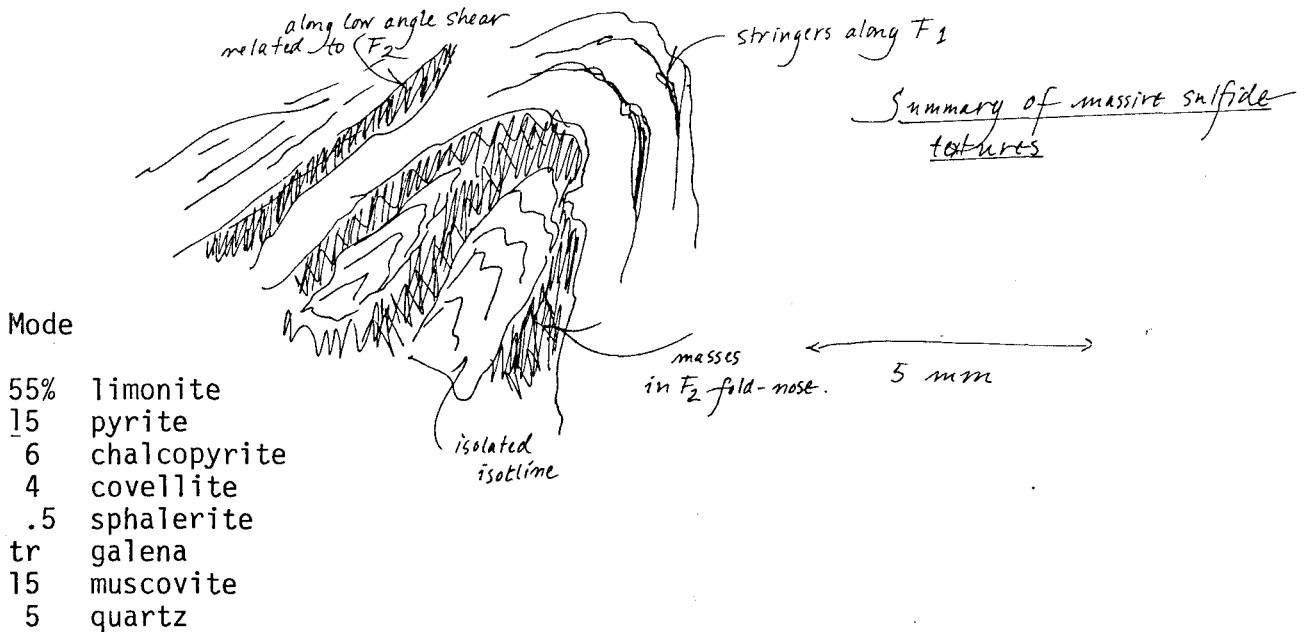 along low angle shear
related to F2
stringers along F1
Summary of massive sulfide
textures
masses
in F2 fold-nose.
5 mm
isolated
isocline
Mode
55% limonite
15 pyrite
6 chalcopyrite
4 covellite
.5 sphalerite
tr galena
15 muscovite
5 quartz